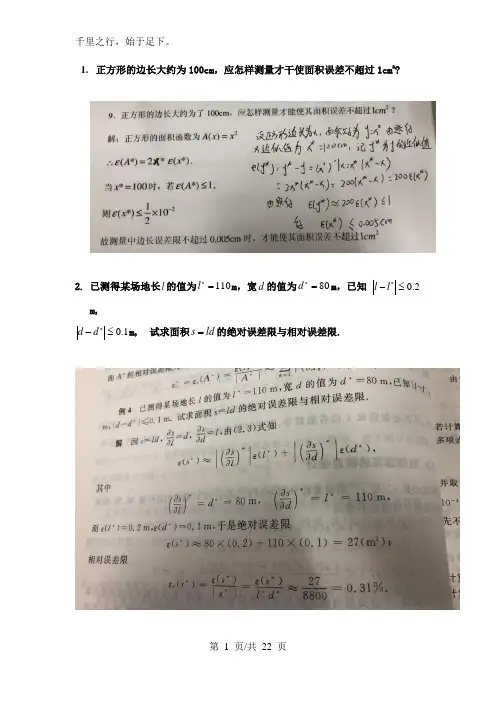 千里之行，始于足下。
1. 正方形的边长大约为100cm，应怎样测量才干使面积误差不超过1cm²?
9．正方形的边长大约为了100cm，应怎样测量才能使其面积误差不超过1cm²？
解：正方形的面积函数为A(x) = x²
∴ε(A*) = 2x* ε(x*).
当x*=100时，若ε(A*) ≤ 1,
则ε(x*) ≤ 1/2 × 10⁻²
故测量中边长误差限不超过0.005cm时，才能使其面积误差不超过1cm²
e(y*) = y* - y = (x²)'|x=x* (x*-x)
= 2x*(x*-x) = 200(x*-x) = 200e(x*)
ε(y*) ≈ 200ε(x*) ≤ 1
ε(x*) ≤ 0.005cm
2. 已测得某场地长l的值为l* = 110m，宽d的值为d* = 80m，已知 |l - l*| ≤ 0.2
m，
|d - d*| ≤ 0.1m， 试求面积s = ld的绝对误差限与相对误差限.
而A*的相对误差限
例4 已测得某场地长l的值为l* = 110 m，宽d的值为d* = 80 m，已知
m，|d-d*| ≤ 0.1 m. 试求面积s=ld的绝对误差限与相对误差限.
解 因s=ld, ∂s/∂l = d, ∂s/∂d = l, 由(2.3)式知
ε(s*) ≈ |(∂s/∂l)*| ε(l*) + |(∂s/∂d)*| ε(d*),
其中
(∂s/∂l)* = d* = 80 m, (∂s/∂d)* = l* = 110 m,
而ε(l*)=0.2 m, ε(d*)=0.1 m, 于是绝对误差限
ε(s*) ≈ 80×(0.2) + 110×(0.1) = 27(m²);
相对误差限
εr(s*) = ε(s*)/|s*| = ε(s*)/(l*d*) ≈ 27/8800 = 0.31%.
若计算
多项式
并取
10⁻
先不
第 1 页/共 22 页